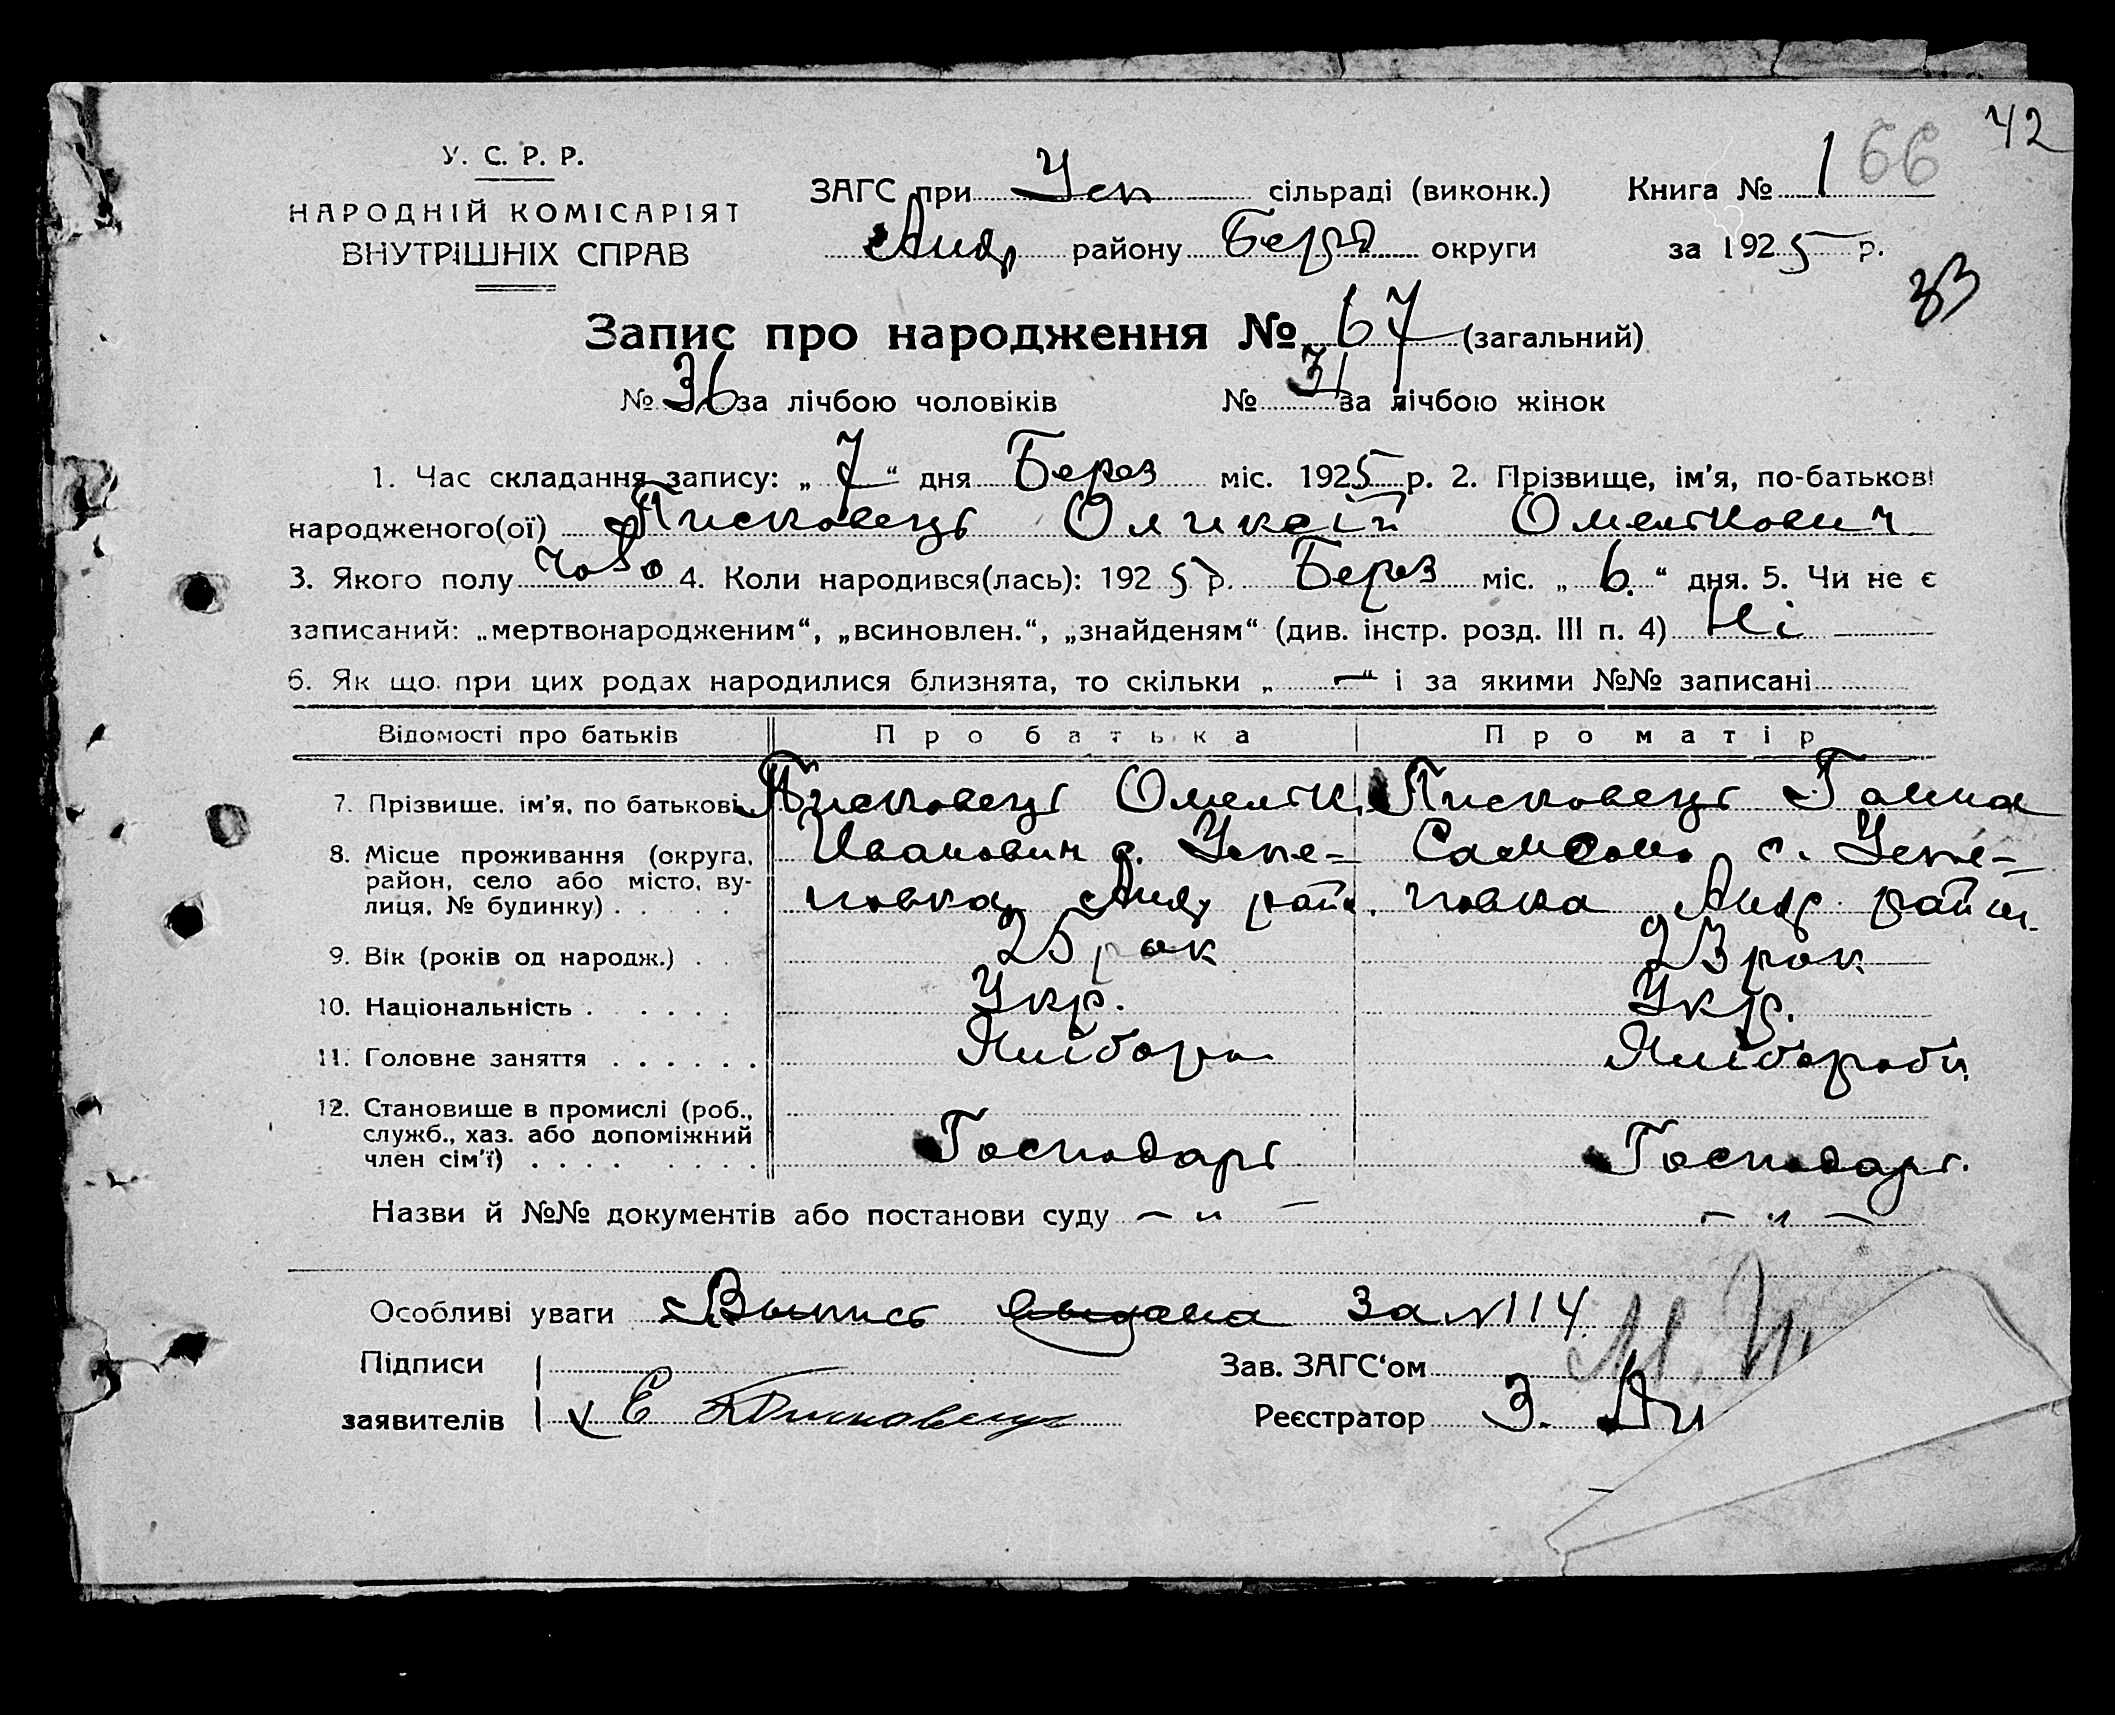 42
У. С. Р. Р.
НАРОДНІЙ КОМІСАРІЯТ
ВНУТРІШНІХ СПРАВ
ЗАГС при Усп сільраді (виконк.) Книга № 1 66
Андр району Бердя округи за 1925 р.
33
Запис про народження № 67 (загальний)
№ 36 за лічбою чоловіків № 31 за лічбою жінок
1. Час складання запису: „7“ дня Берез міс. 1925 р. 2. Прізвище, ім'я, по-батькові
народженого(ої) Писковець Оликсій Омелькович
3. Якого полу чоло 4. Коли народився(лась): 1925 р. Берез міс. „6.“ дня. 5. Чи не є
записаний: „мертвонародженим“, „всиновлен.“, „знайденям“ (див. інстр. розд. III п. 4) Ні
6. Як що при цих родах народилися близнята, то скільки „—“ і за якими №№ записані
Відомості про батьків Про батька Про матір
7. Прізвище, ім'я, по батькові Писковець Омельк Писковець Ганна
8. Місце проживання (округа, Иванович с. Успе- Самсоно с. Успе-
район, село або місто, ву-
лиця, № будинку) новка Андр райо. новка Андр. район.
9. Вік (років од народж.) 25 рок 23 рок
10. Національність Укр. Укр.
11. Головне заняття Хлібороб Хлібороб
12. Становище в промислі (роб.,
служб., хаз. або допоміжний
член сім'ї) Господарь Господарь.
Назви й №№ документів або постанови суду — „ — — „ —
Особливі уваги Выпись выдана За №114
Підписи Зав. ЗАГС'ом
заявителів Е Писковець Реєстратор З.